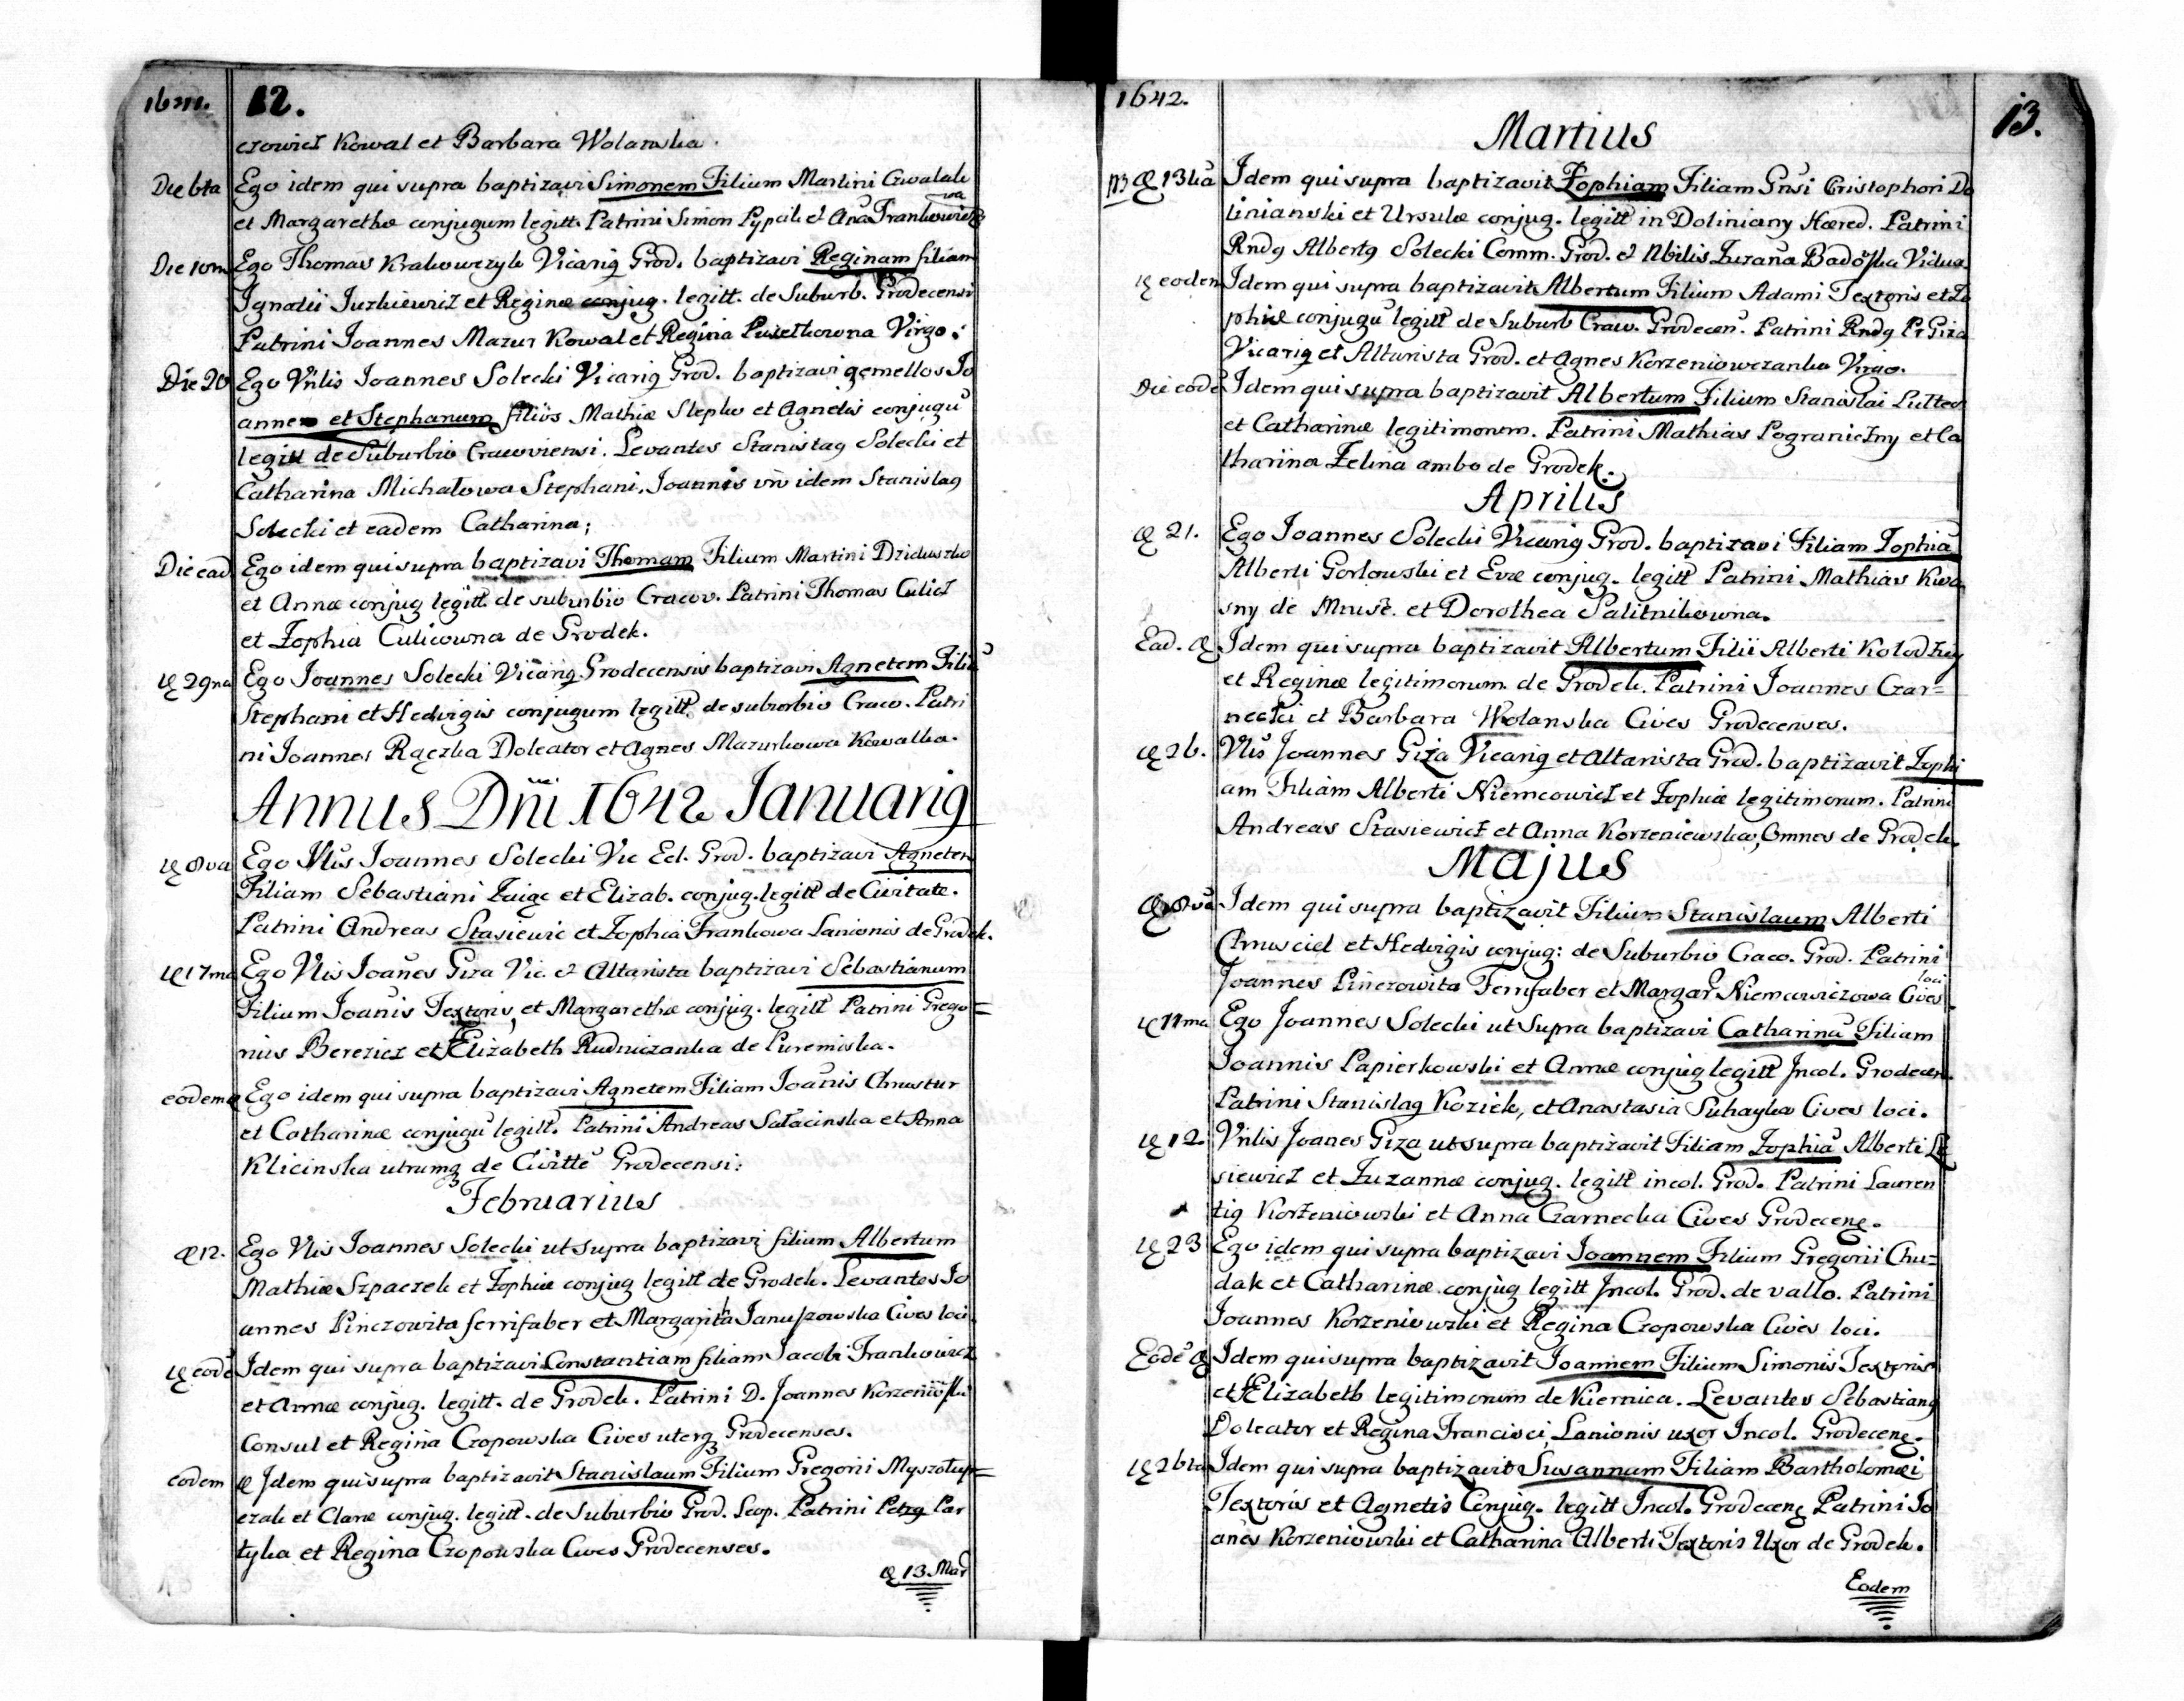 1641. 12.
czowicz Kowal et Barbara Wolanska.
Die 6ta Ego idem qui supra baptizavi Simonem Filium Martini Cwalak
et Margarethæ conjugum legitt. Patrini Simon Pypcik et Ana Frankowiczowa
Die 10m Ego Thomas Krakowczyk Vicariq Grod. baptizavi Reginam filiam
Ignatii Juzkiewicz et Reginæ conjug. legitt. de Suburb. Grodecensi
Patrini Joannes Mazur Kowal et Regina Virgo:
Die 20 Ego Vnlis Joannes Solecki Vicariq Grod. baptizavi gemellos Jo
annem et Stephanum filios Mathiæ Slepko et Agnetis conjugū
legitt de Suburbio Cracoviensi. Levantes Stanislaq Solecki et
Catharina Michałowa Stephani, Joannis vrō idem Stanislaq
Solecki et eadem Catharina;
Die ead Ego idem qui supra baptizavi Thomam Filium Martini Dziduszko
et Annæ conjug legitt. de suburbio Cracov. Patrini Thomas Culicz
et Zophia Culicowna de Grodek.
Die 29na Ego Joannes Solecki Vicariq Grodecensis baptizavi Agnetem Filiā
Stephani et Hedvigis conjugum legitt. de suburbio Craco. Patri
ni Joannes Rączka Doleator et Agnes Mazurkowa Kowalka.
Annus Dni 1642 Januariq
Die 8va Ego Vlis Joannes Solecki Vic Ecl. Grod. baptizavi Agnetem
Filiam Sebastiani et Elizab. conjug. legitt de Civitate.
Patrini Andreas Stasiewic et Zophia Frankowa Lanionis de Grodek.
Die 17ma Ego Vlis Joanes Giza Vic. et Altarista baptizavi Sebastianum
Filium Joanis Textoris, et Margarethæ conjug. legitt Patrini Grego=
rius Berezicz et Elizabeth Rudniczanka de
eodem Ego idem qui supra baptizavi Agnetem Filiam Joanis Chrustur
et Catharinæ conjugū legitt. Patrini Andreas Sałacinska et Anna
Klicinska utrumq de Civitte Grodecensi:
Februarius
Die 12. Ego Vlis Joannes Solecki ut supra baptizavi filium Albertum
Mathiæ Szpaczek et Zophiæ conjug legitt de Grodek. Levantes Jo
annes Pinczowita ferrifaber et Margaritha Januszowska Cives loci
Die eodē Idem qui supra baptizavi Constantiam filiam Jacobi Frankowicz
et Annæ conjug. legitt. de Grodek. Patrini D. Joannes Korzeniōski
Consul et Regina Czopowska Cives uterq Grodecenses.
eodem Idem qui supra baptizavit Stanislaum Filium Gregorii Myszołup=
czak et Claræ conjug. legitt. de Suburbio Grod. Leop. Patrini Petrq Par
tyka et Regina Czopowska Cives Grodecenses.
Die 13. Mar
1642. 13.
Martius
Die 13tia Idem qui supra baptizavit Zophiam Filiam Gnsi Cristophori Do
linianski et Ursulæ conjug. legitt in Doliniany Hæred. Patrini
Rndq Albertq Solecki Comm. Grod. et Nbilis Zuzana Badōska Vidua.
Die eodem Idem qui supra baptizavit Albertum Filium Adami Textoris et Zo
phiæ conjugū legitt de Suburb Craco. Grodecen. Patrini Rndq Giza
Vicariq et Altarista Grod. et Agnes Korzeniowczanka Virgo.
Die eodē Idem qui supra baptizavit Albertum Filium Stanislai
et Catharinæ legitimorum. Patrini Mathias Pograniczny et Ca
tharina Zelina ambo de Grodek.
Aprilis
Die 21. Ego Joannes Solecki Vicariq Grod. baptizavi Filiam Zophiā
Alberti Gorlowski et Evæ conjug. legitt Patrini Mathias Kwa
sny de et Dorothea Salitnikowna.
Ead. Die Idem qui supra baptizavit Albertum Filii Alberti Kołodziey
et Reginæ legitimorum de Grodek. Patrini Joannes Czar=
necki et Barbara Wolanska Cives Grodecenses.
Die 26. Vlis Joannes Giza Vicariq et Altarista Grod. baptizavit Zophi
am Filiam Alberti Niemcowicz et Zophiæ legitimorum. Patrini
Andreas Stasiewicz et Anna Korzeniewska, Omnes de Grodek.
Majus
Die 8va Idem qui supra baptizavit Filium Stanislaum Alberti
Chrusciel et Hedvigis conjug: de Suburbio Craco. Grod. Patrini
Joannes Pinczowita Ferrifaber et Margar Niemcowiczowa Cives loci
Die 11ma Ego Joannes Solecki ut supra baptizavi Catharinā Filiam
Joannis Papierkowski et Annæ conjug legitt Incol. Grodecen.
Patrini Stanislaq Koziek, et Anastasia Suhayka Cives loci.
Die 12 Vnlis Joanes Giza ut supra baptizavit Filiam Zophiā Alberti
siewicz et Zuzannæ conjug. legitt incol. Grod. Patrini Lauren
tiq Korzeniowski et Anna Czarnecka Cives Grodecenę.
Die 23 Ego idem qui supra baptizavi Joannem Filium Gregorii Chu=
dak et Catharinæ conjug legitt Incol. Grod. de vallo. Patrini
Joannes Korzeniowski et Regina Czopowska Cives loci.
Eodē Die Idem qui supra baptizavit Joannem Filium Simonis Textoris
et Elizabeth legitimorum de Kiernica. Levantes Sebastianq
Doleator et Regina Francisci Lanionis uxor Incol. Grodecenę.
Die 26ta Idem qui supra baptizavit Susannam Filiam Bartholomæi
Textoris et Agnetis Conjug. legitt Incol. Grodecenę Patrini Jo
anes Korzeniowski et Catharina Alberti Textoris Uxor de Grodek.
Eodem